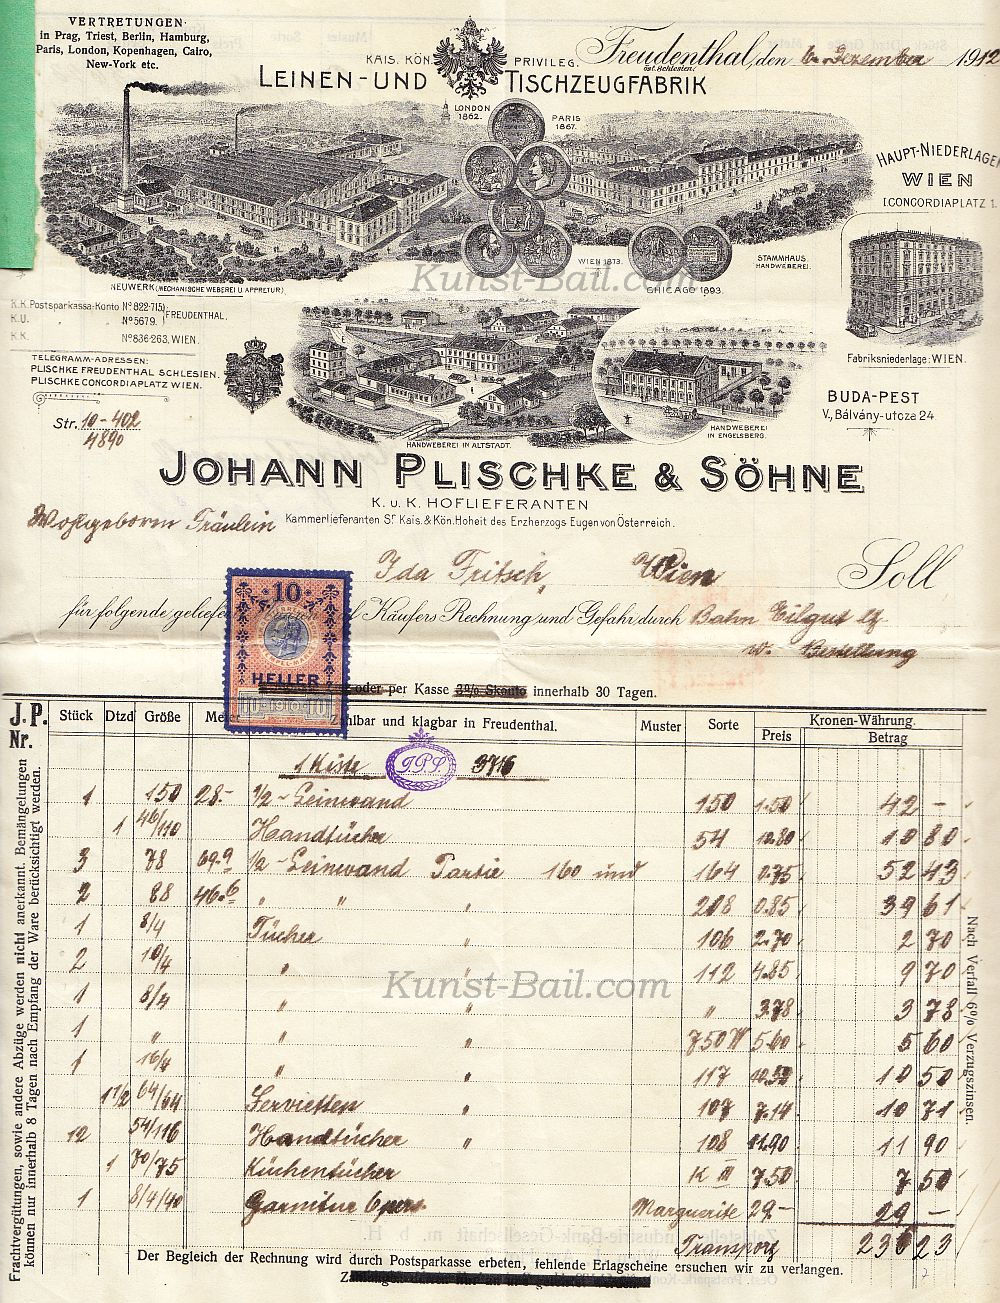 VERTRETUNGEN
in Prag, Triest, Berlin, Hamburg,
Paris, London, Kopenhagen, Cairo,
New-York etc.
KAIS. KÖN. PRIVILEG.
LEINEN- UND TISCHZEUGFABRIK
Freudenthal, den 6. Dezember 1912
öst. Schlesien.
LONDON
1862.
PARIS
1867.
HAUPT-NIEDERLAGEN
WIEN
I. CONCORDIAPLATZ 1.
WIEN 1873.
CHICAGO 1893.
STAMMHAUS.
HANDWEBEREI.
NEUWERK (MECHANISCHE WEBEREI U. APPRETUR)
K.K. Postsparkassa-Konto No 822·715
K.U. No 5679.
FREUDENTHAL.
K.K. No 836·263, WIEN.
TELEGRAMM-ADRESSEN:
PLISCHKE FREUDENTHAL SCHLESIEN.
PLISCHKE CONCORDIAPLATZ WIEN.
Str. 10-402
4890
Fabriksniederlage: WIEN.
BUDA-PEST
V., Bálvány-utcza 24
HANDWEBEREI IN ALTSTADT.
HANDWEBEREI
IN ENGELSBERG.
JOHANN PLISCHKE & SÖHNE
K. u. K. HOFLIEFERANTEN
Kammerlieferanten Sr. Kais. & Kön. Hoheit des Erzherzogs Eugen von Österreich.
Wohlgeboren Fräulein
Ida Fritsch, Wien
Soll
für folgende geliefer Käufers Rechnung und Gefahr durch Bahn Eilgut
w. Bestellung
10
HELLER
1910
oder per Kasse 3% Skonto innerhalb 30 Tagen.
J. P. Nr. Stück Dtzd Größe Meter Zahlbar und klagbar in Freudenthal. Muster Sorte Kronen-Währung.
Preis Betrag
1 Kiste J.P.S. 3746
1 150 28- 1/2 - Leinwand 150 1.50 42 -
1 46/110 Handtücher 54 10.80 10 80
3 78 69.9 1/2 - Leinwand Partie 160 und 164 0.75 52 43
2 88 46.6 " " " 208 0.85 39 61
1 8/4 Tücher " 106 2.70 2 70
2 10/4 " " 112 4.85 9 70
1 8/4 " " " 3.78 3 78
1 " " " 750 W 5.60 5 60
1 16/4 " " 117 10.50 10 50
1 1/2 64/64 Servietten " 107 7.14 10 71
12 54/116 Handtücher " 108 11.90 11 90
1 70/75 Küchentücher K III 7.50 7 50
1 8/4/40 Garnitur 6 pers. Marguerite 29- 29 -
Transport 236 23
Der Begleich der Rechnung wird durch Postsparkasse erbeten, fehlende Erlagscheine ersuchen wir zu verlangen.
Frachtvergütungen, sowie andere Abzüge werden nicht anerkannt. Bemängelungen
können nur innerhalb 8 Tagen nach Empfang der Ware berücksichtigt werden.
Nach Verfall 6% Verzugszinsen.
Kunst-Bail.com
Kunst-Bail.com